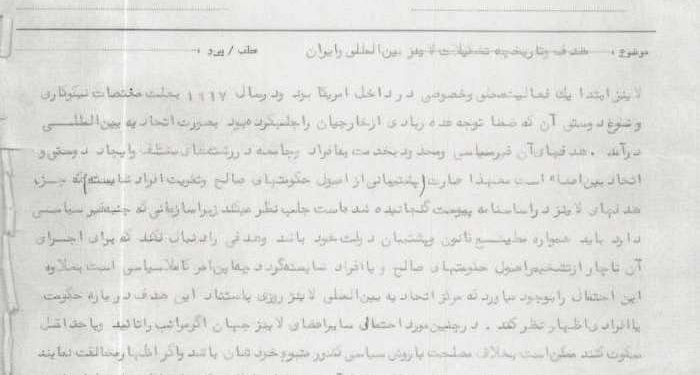 موضوع : هدف و تاریخچه تشکیلات لاینز بین‌المللی و ایران عطف / پیرو :
لاینز ابتدا یک فعالیت محلی و خصوصی در داخل امریکا بود و در سال ۱۹۱۷ بعلت مختصات نیکوکاری
و نوع دوستی آن که ضمنا توجه عده زیادی از خارجیان را جلب کرده بود بصورت اتحادیه بین‌المللی
درآمد . هدفهای آن غیرسیاسی و محدود بخدمت بافراد و جامعه در رشته‌های مختلف و ایجاد دوستی و
اتحاد بین اعضاء است معهذا عبارت (پشتیبانی از اصول حکومتهای صالح و تقویت افراد شایسته) که جزء
هدفهای لاینز در اساسنامه پیوست گنجانیده شده است جلب نظر میکند زیرا سازمانی که جنبه غیر سیاسی
دارد باید همواره مطیع قانون و پشتیبان دولت خود باشد و هدفی را دنبال نکند که برای اجرای
آن ناچار از تشخیص اصول حکومتهای صالح و یا افراد شایسته گردد چه این امر کاملا سیاسی است بعلاوه
این احتمال را بوجود میآورد که مرکز اتحادیه بین‌المللی لاینز روزی باستناد این هدف درباره حکومت
یا افرادی اظهار نظر کند . در چنین مورد احتمالی سایر اعضای لاینز جهان اگر مراتب را تائید و یا حداقل
سکوت کنند ممکن است بخلاف مصلحت یا روش سیاسی کشور متبوع خودشان باشد و اگر اظهار مخالفت نمایند